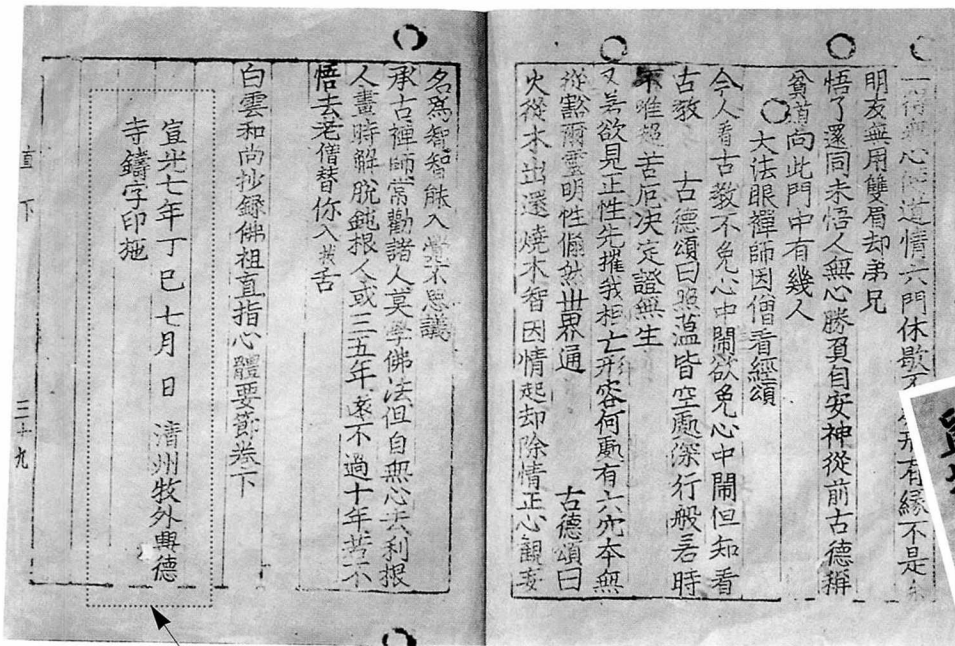 一得無心便道情六門休歇不
有緣不是
明友無用雙眉却弟兄
悟了還同未悟人無心勝負自安神從前古德稱
貧道向此門中有幾人
大法眼禪師因僧看經頌
今人看古教不免心中鬧欲免心中鬧但知看
古教 古德頌曰照蘊皆空處深行般若時
不唯超苦厄決定證無生
又善欲見正性先摧我相亡形容何處有六穴本無
從豁爾靈明性翛然世界通 古德頌曰
火從木出還燒木智因情起却除情正心觀妄
名爲智智能入覺不思議
承古禪師常勸諸人莫學佛法但自無心去利根
人畫時解脫鈍根人或三五年遠不過十年若不
悟去老僧替你入拔舌
白雲和尚抄錄佛祖直指心體要節卷下
宣光七年丁巳七月 日 清州牧外興德
寺鑄字印施
直下 三十九